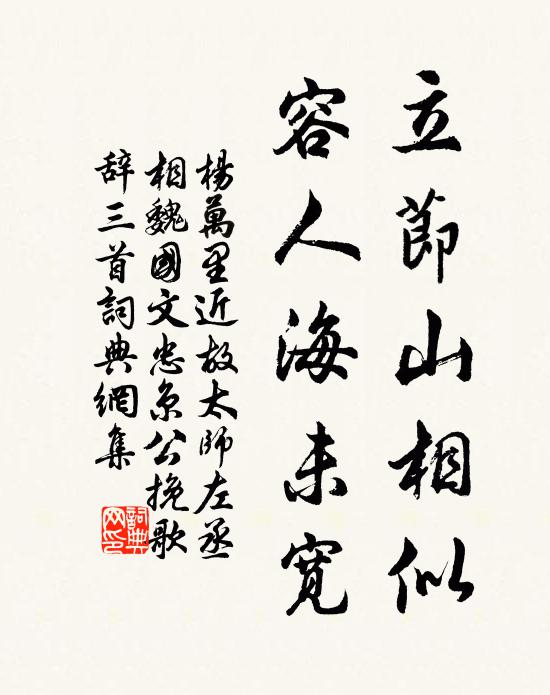 立節山相似
容人海未寬
楊萬里近故太師左丞
相魏國文忠京公挽歌
辞三首詞典網集
詞典网印